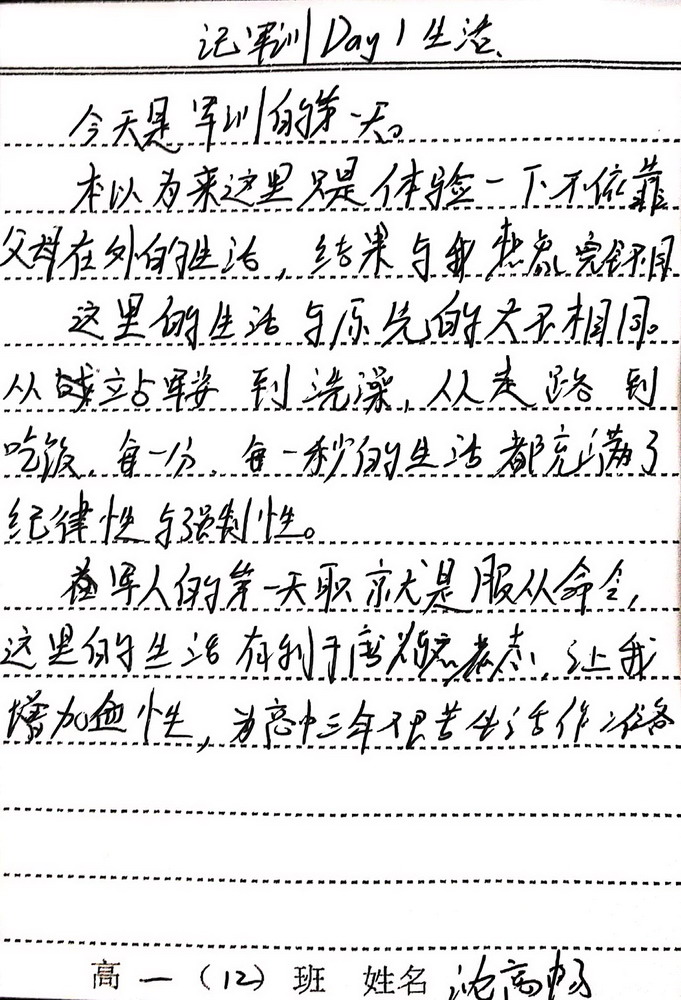 记军训Day1生活
今天是军训的第一天。
本以为来这里只是体验一下不依靠
父母在外的生活，结果与我想象完全不同
这里的生活与原先的大不相同。
从站军姿到洗澡，从走路到
吃饭，每一分，每一秒的生活都充满了
纪律性与强制性。
军人的第一天职就是服从命令，
这里的生活有利于磨，让我
增加血性，为高中三年艰苦生活作准备
高一（12）班 姓名 沈高畅